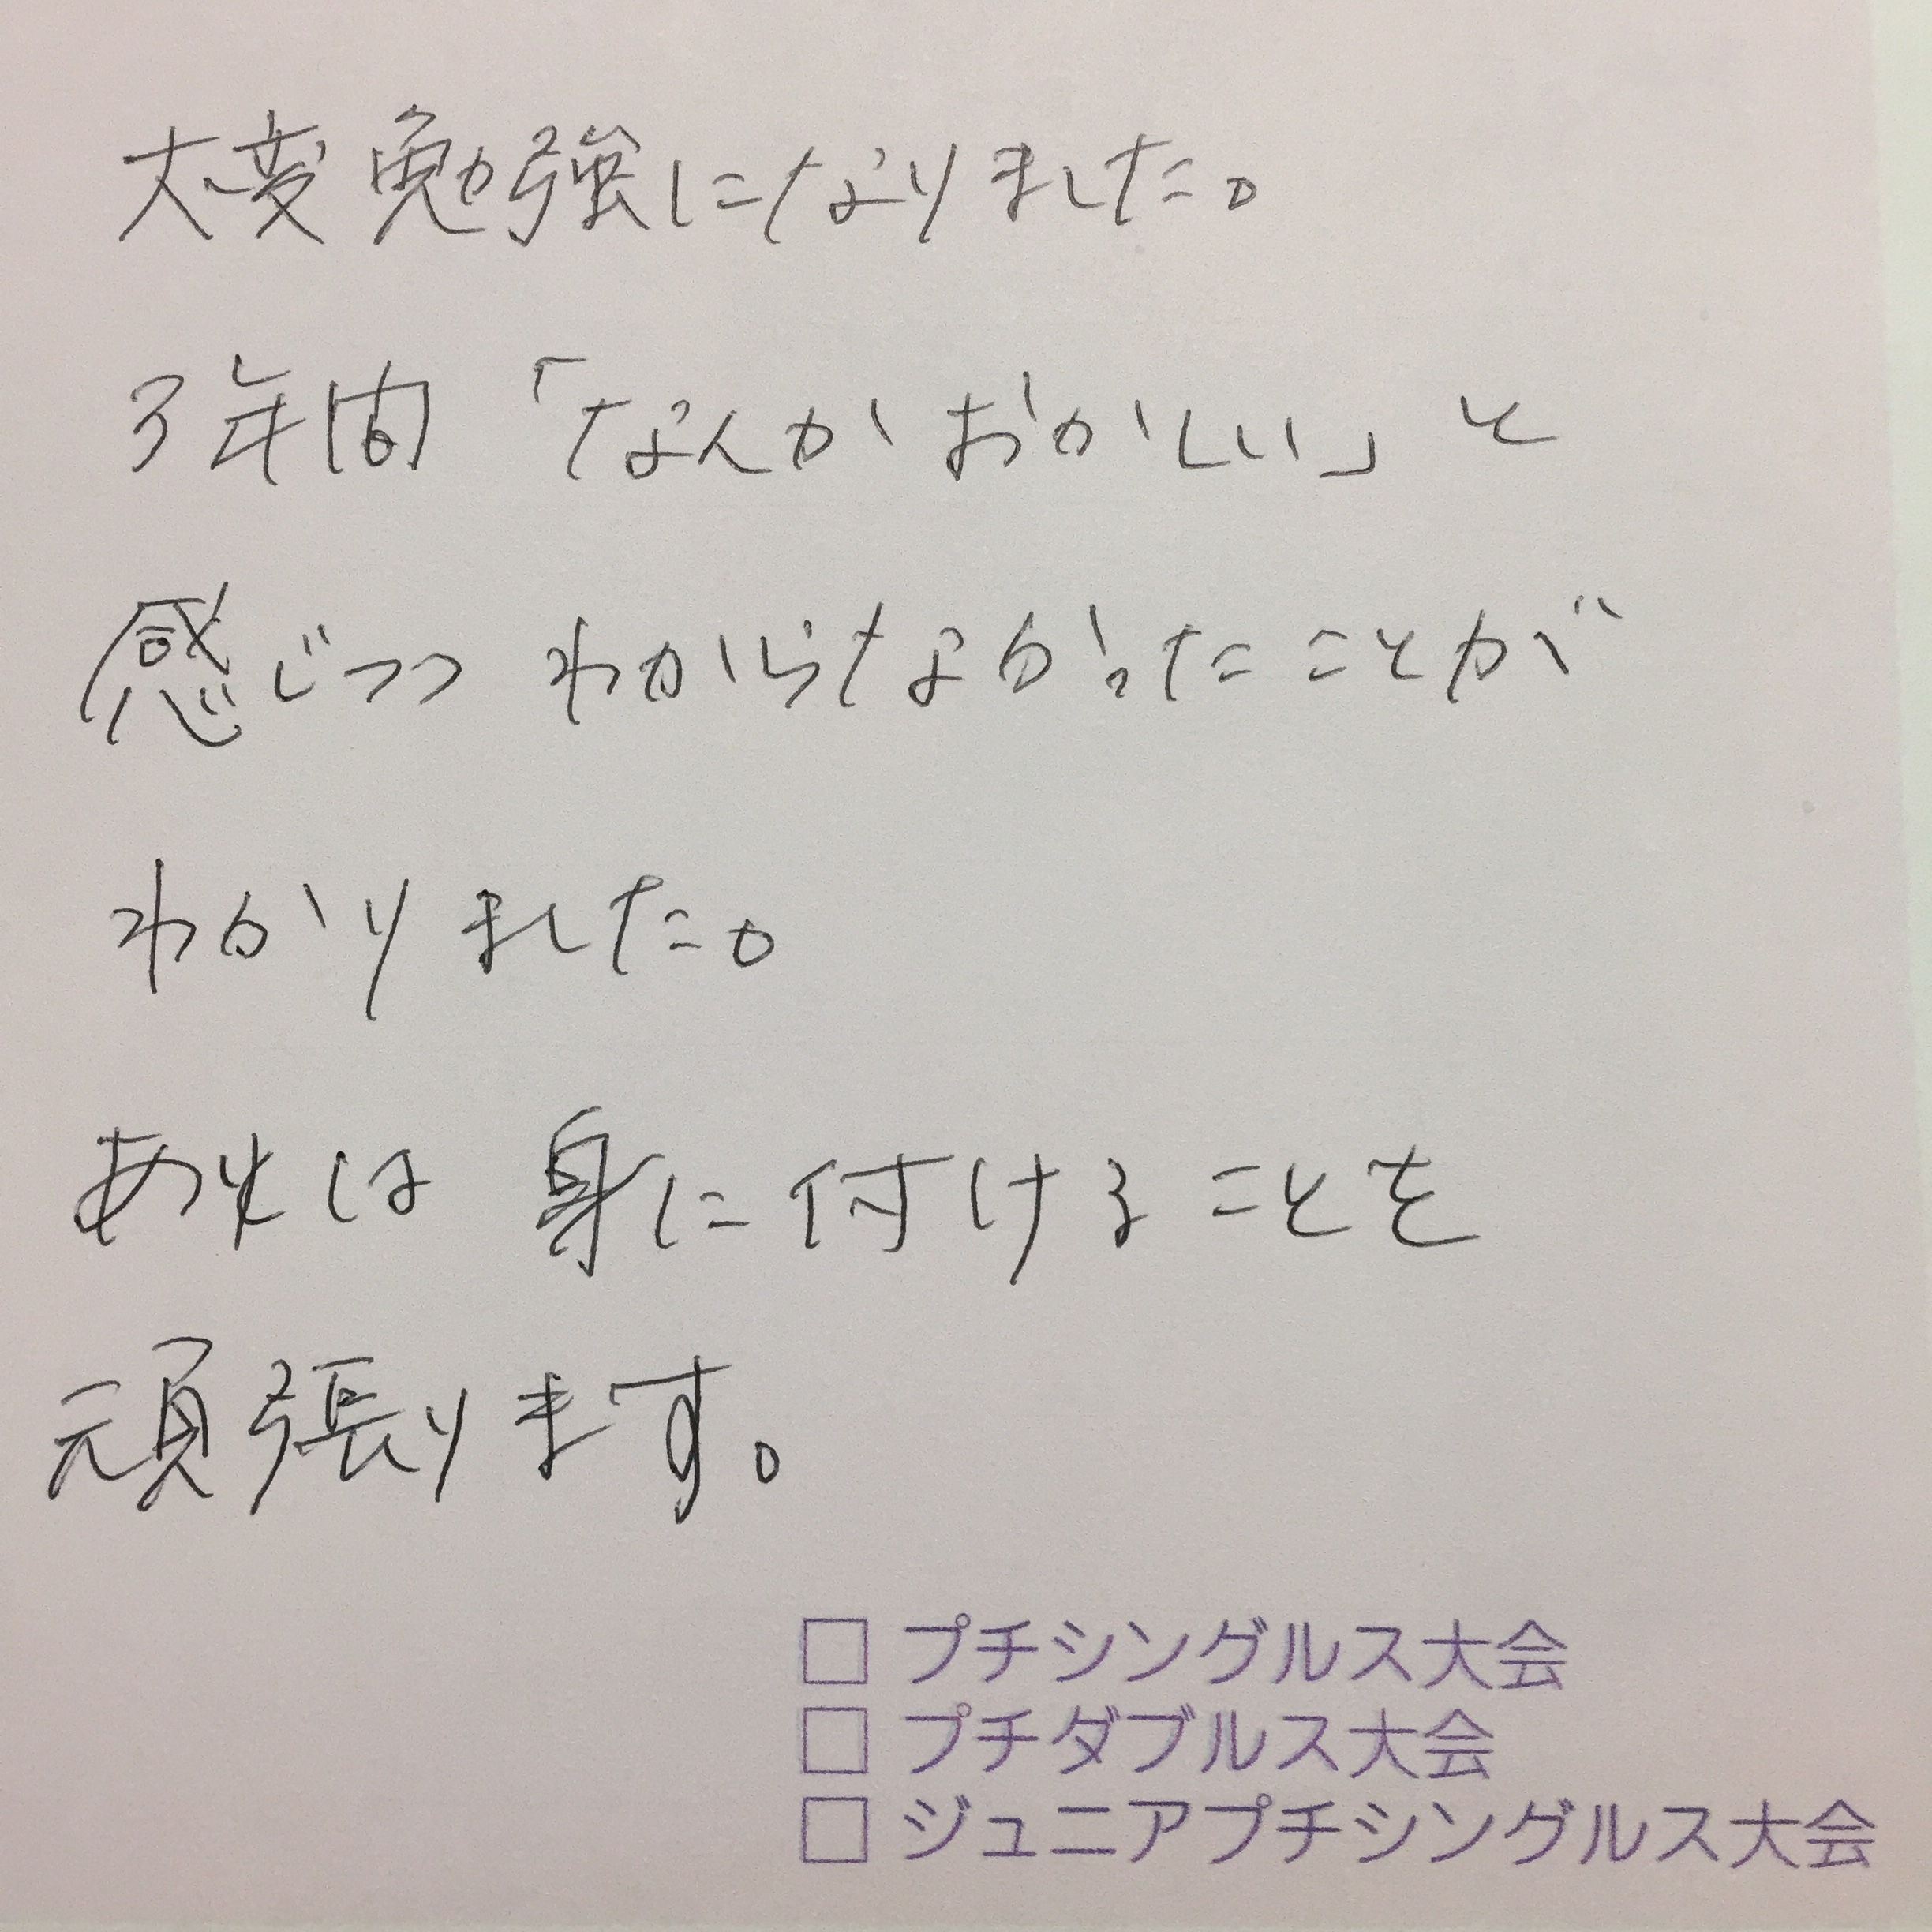 大変勉強になりました。
3年間「なんかおかしい」と
感じつつ わからなかったことが
わかりました。
あとは 身に付けることを
頑張ります。
□ プチシングルス大会
□ プチダブルス大会
□ ジュニアプチシングルス大会